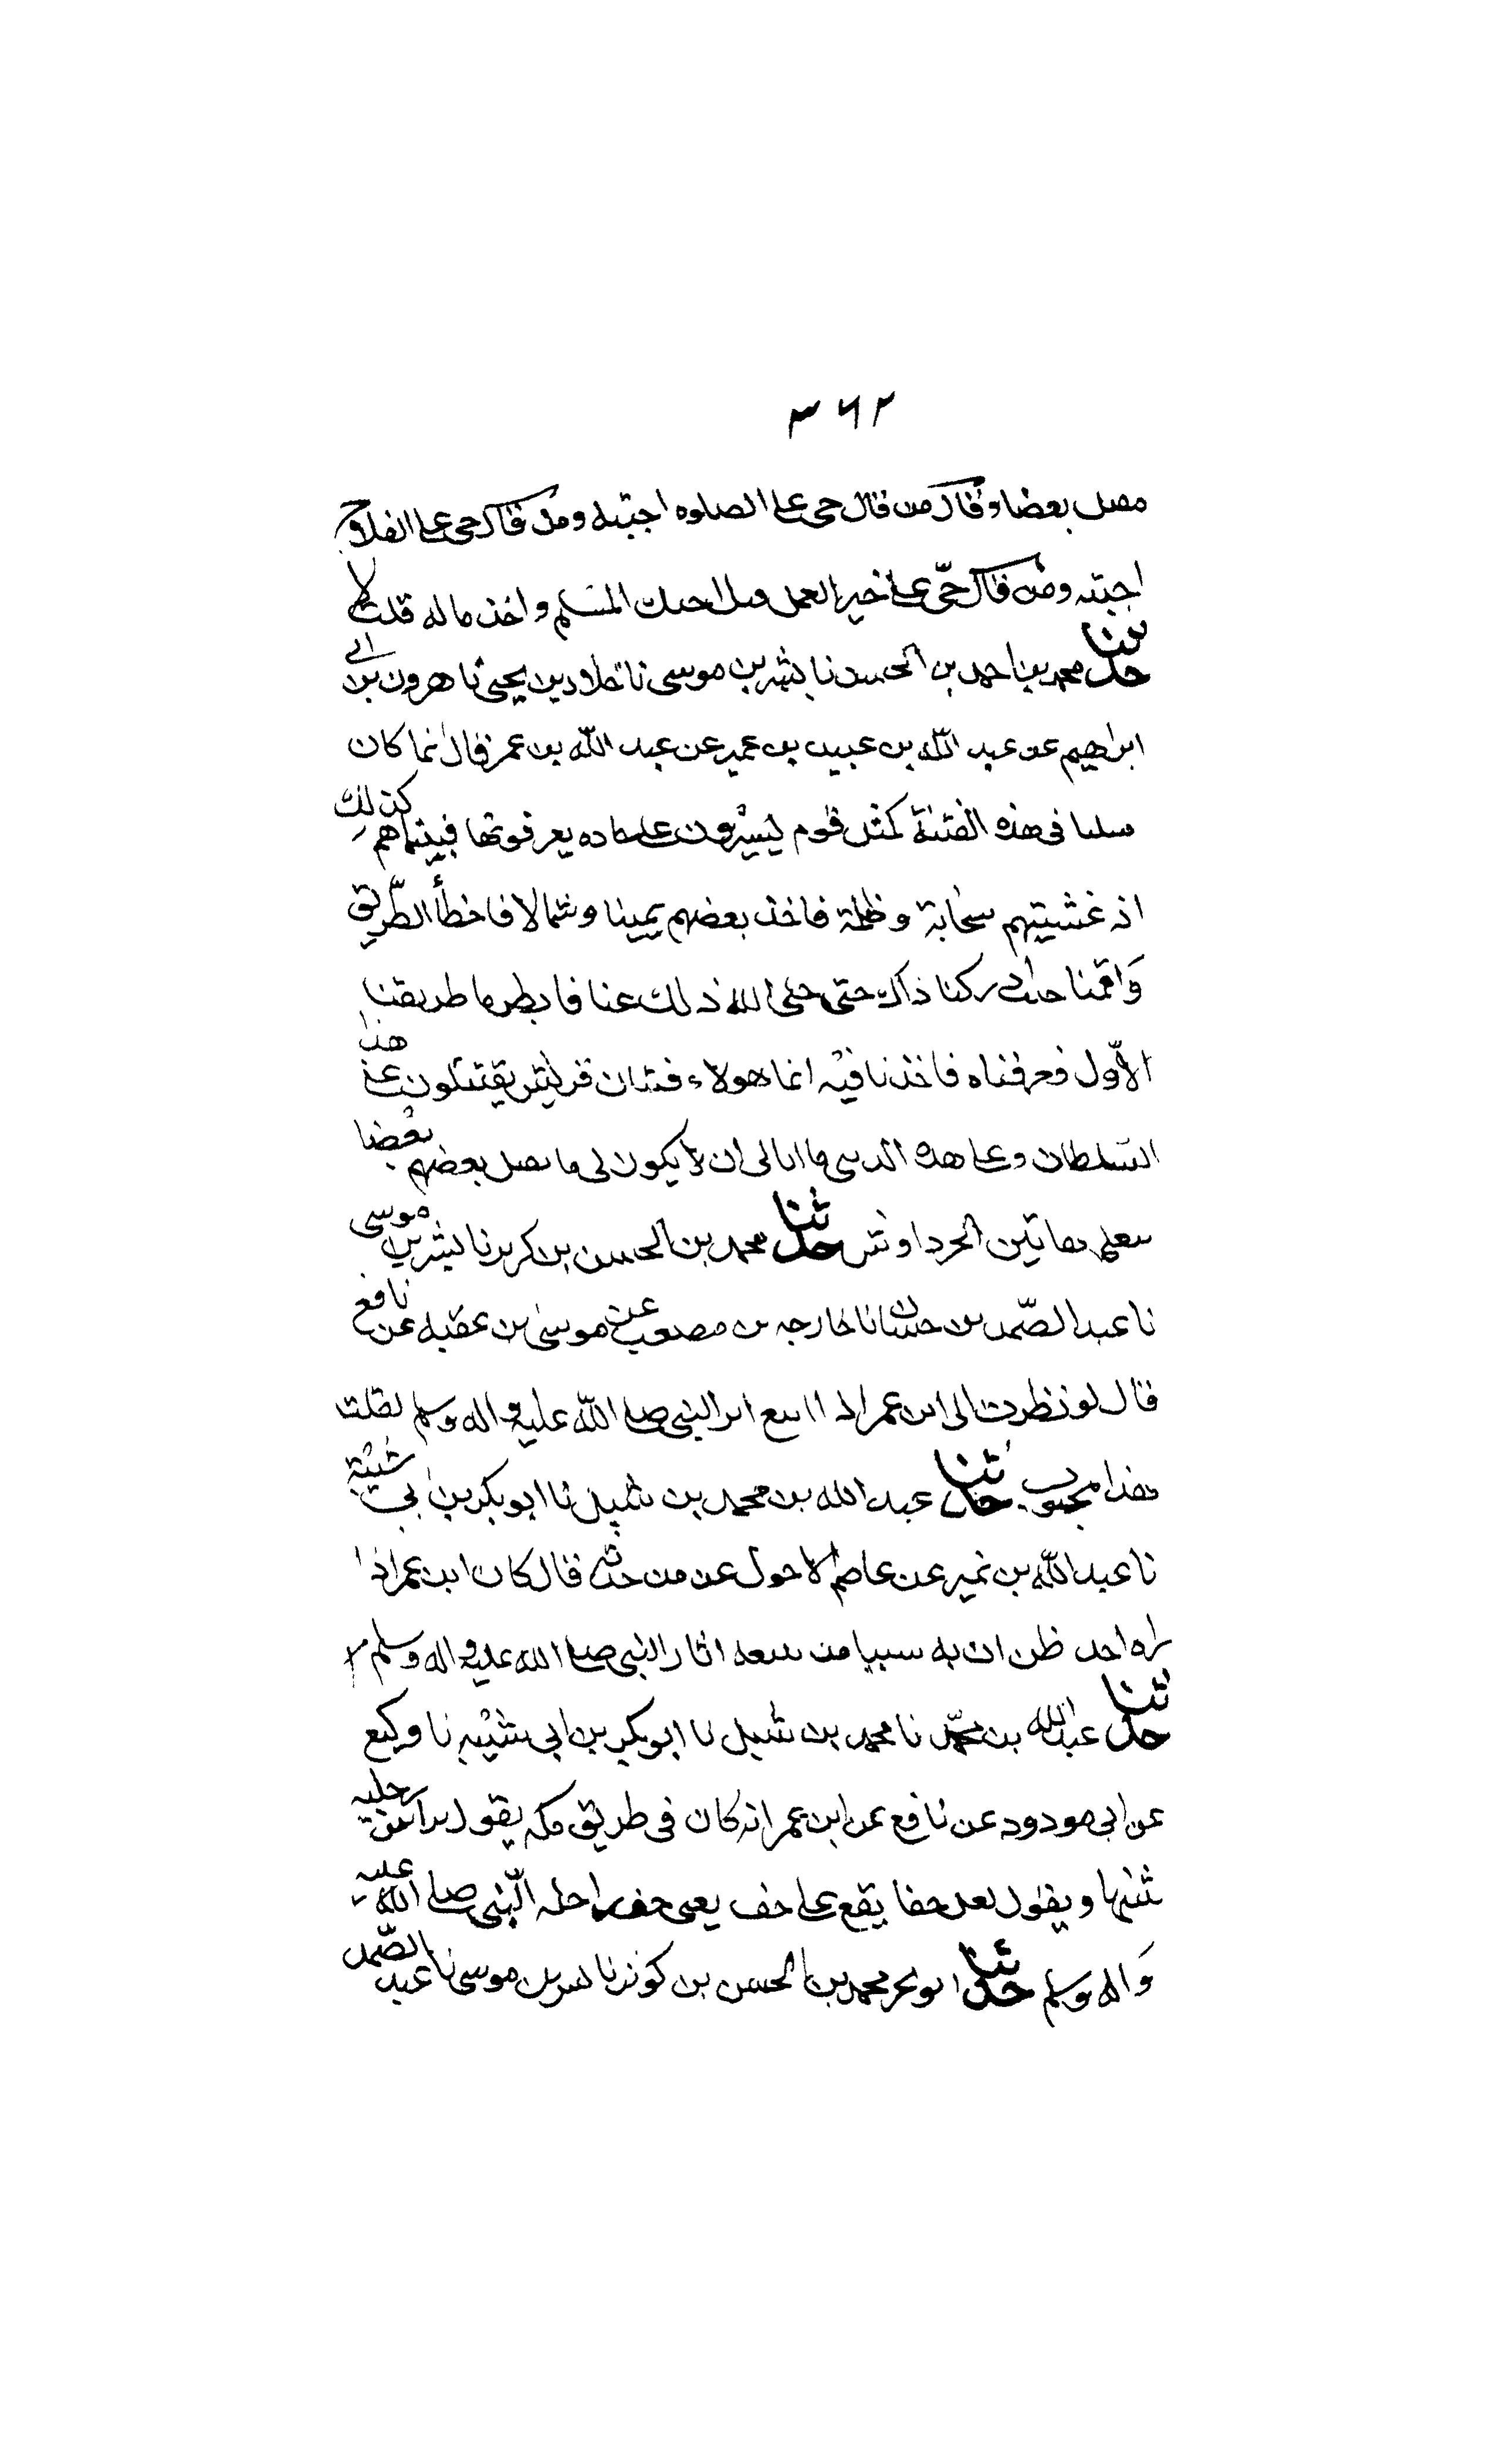 ٣٦٢
بعضا وقال من قال حى على الصلوه اجبته ومن قال حى على الفلاح
اجبته ومن قال حىّ على خير العمل المسلم واخذ ماله قلت لا
حدثنا محمد بن احمد بن الحسن نا بشر بن موسى نا خلاد بن يحيى نا هرون بن ابى
ابراهيم عن عبد الله بن عبيد بن عمير عن عبد الله بن عمر قال انما كان
مثلنا فى هذه الفتنة كمثل قوم يسيرون على جاده يعرفونها فبينما هم كذلك
اذ غشيتهم سحابة وظلمة فاخذ بعضهم يمينا وشمالا فاخطأ الطّريق
وَاقمنا حيث ادركنا ذاك حتى جلى الله ذلك عنا فابصرنا طريقنا
الاوّل فعرفناه فاخذنا فيه انما هولاء فتيان قريش يقتتلون على هذا
السّلطان وعلى هذه الدنيا ما ابالى ان لا يكون لى ما يقتل بعضهم بعضا
بنعلى هاتين الجرداوتين حدثنا محمد بن الحسن بن كوثر نا بشر بن موسى
نا عبد الصّمد بن حسان نا خارجه بن مصعب عن موسى بن عقبه عن نافع
قال لو نظرت الى ابن عمر اذا اتبع اثر النبى صلى الله عليه واله وسلم لقلت
هذا مجنون حدثنا عبد الله بن محمد بن شبل نا ابو بكر بن ابى شيبة
نا عبد الله بن نمير عن عاصم الاحول عن من حدثه قال كان ابن عمر اذا
راه احد ظن ان به شيئا من تتبعه اثار النبى صلى الله عليه واله وسلم
حدثنا عبد الله بن محمّد نا محمد بن شبل نا ابو بكر بن ابى شيبه نا وكيع
عن ابى مودود عن نافع عن ابن عمر انه كان فى طريق مكه يقول براس رحليه
يثنيها ويقول لعل خفا يقع على خف يعنى خف راحله النّبى صلى الله عليه
وَاله وسلم حدثنا ابو بحر محمد بن الحسن بن كوثر نا بشر بن موسى نا عبد الصّمد